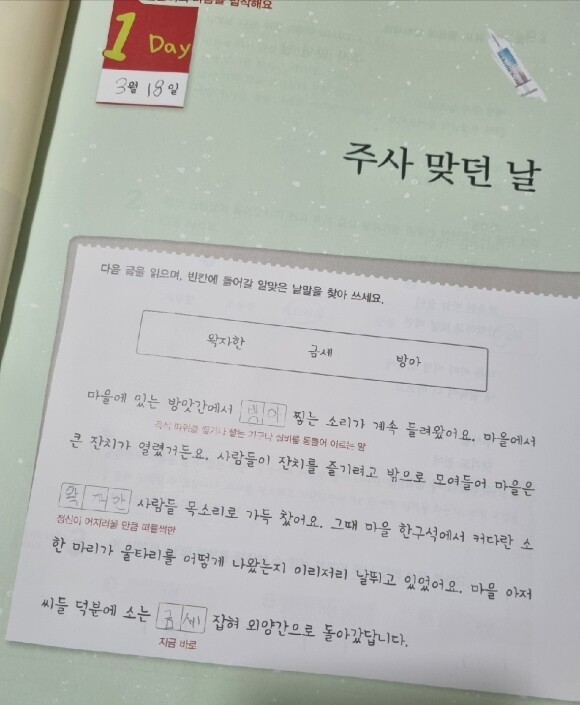 1 Day
3월 18일
주사 맞던 날
다음 글을 읽으며, 빈칸에 들어갈 알맞은 낱말을 찾아 쓰세요.
왁자한 금세 방아
마을에 있는 방앗간에서 방아 찧는 소리가 계속 들려왔어요. 마을에서
곡식 따위를 찧거나 빻는 기구나 설비를 통틀어 이르는 말
큰 잔치가 열렸거든요. 사람들이 잔치를 즐기려고 밖으로 모여들어 마을은
왁자한 사람들 목소리로 가득 찼어요. 그때 마을 한구석에서 커다란 소
정신이 어지러울 만큼 떠들썩한
한 마리가 울타리를 어떻게 나왔는지 이리저리 날뛰고 있었어요. 마을 아저
씨들 덕분에 소는 금세 잡혀 외양간으로 돌아갔답니다.
지금 바로